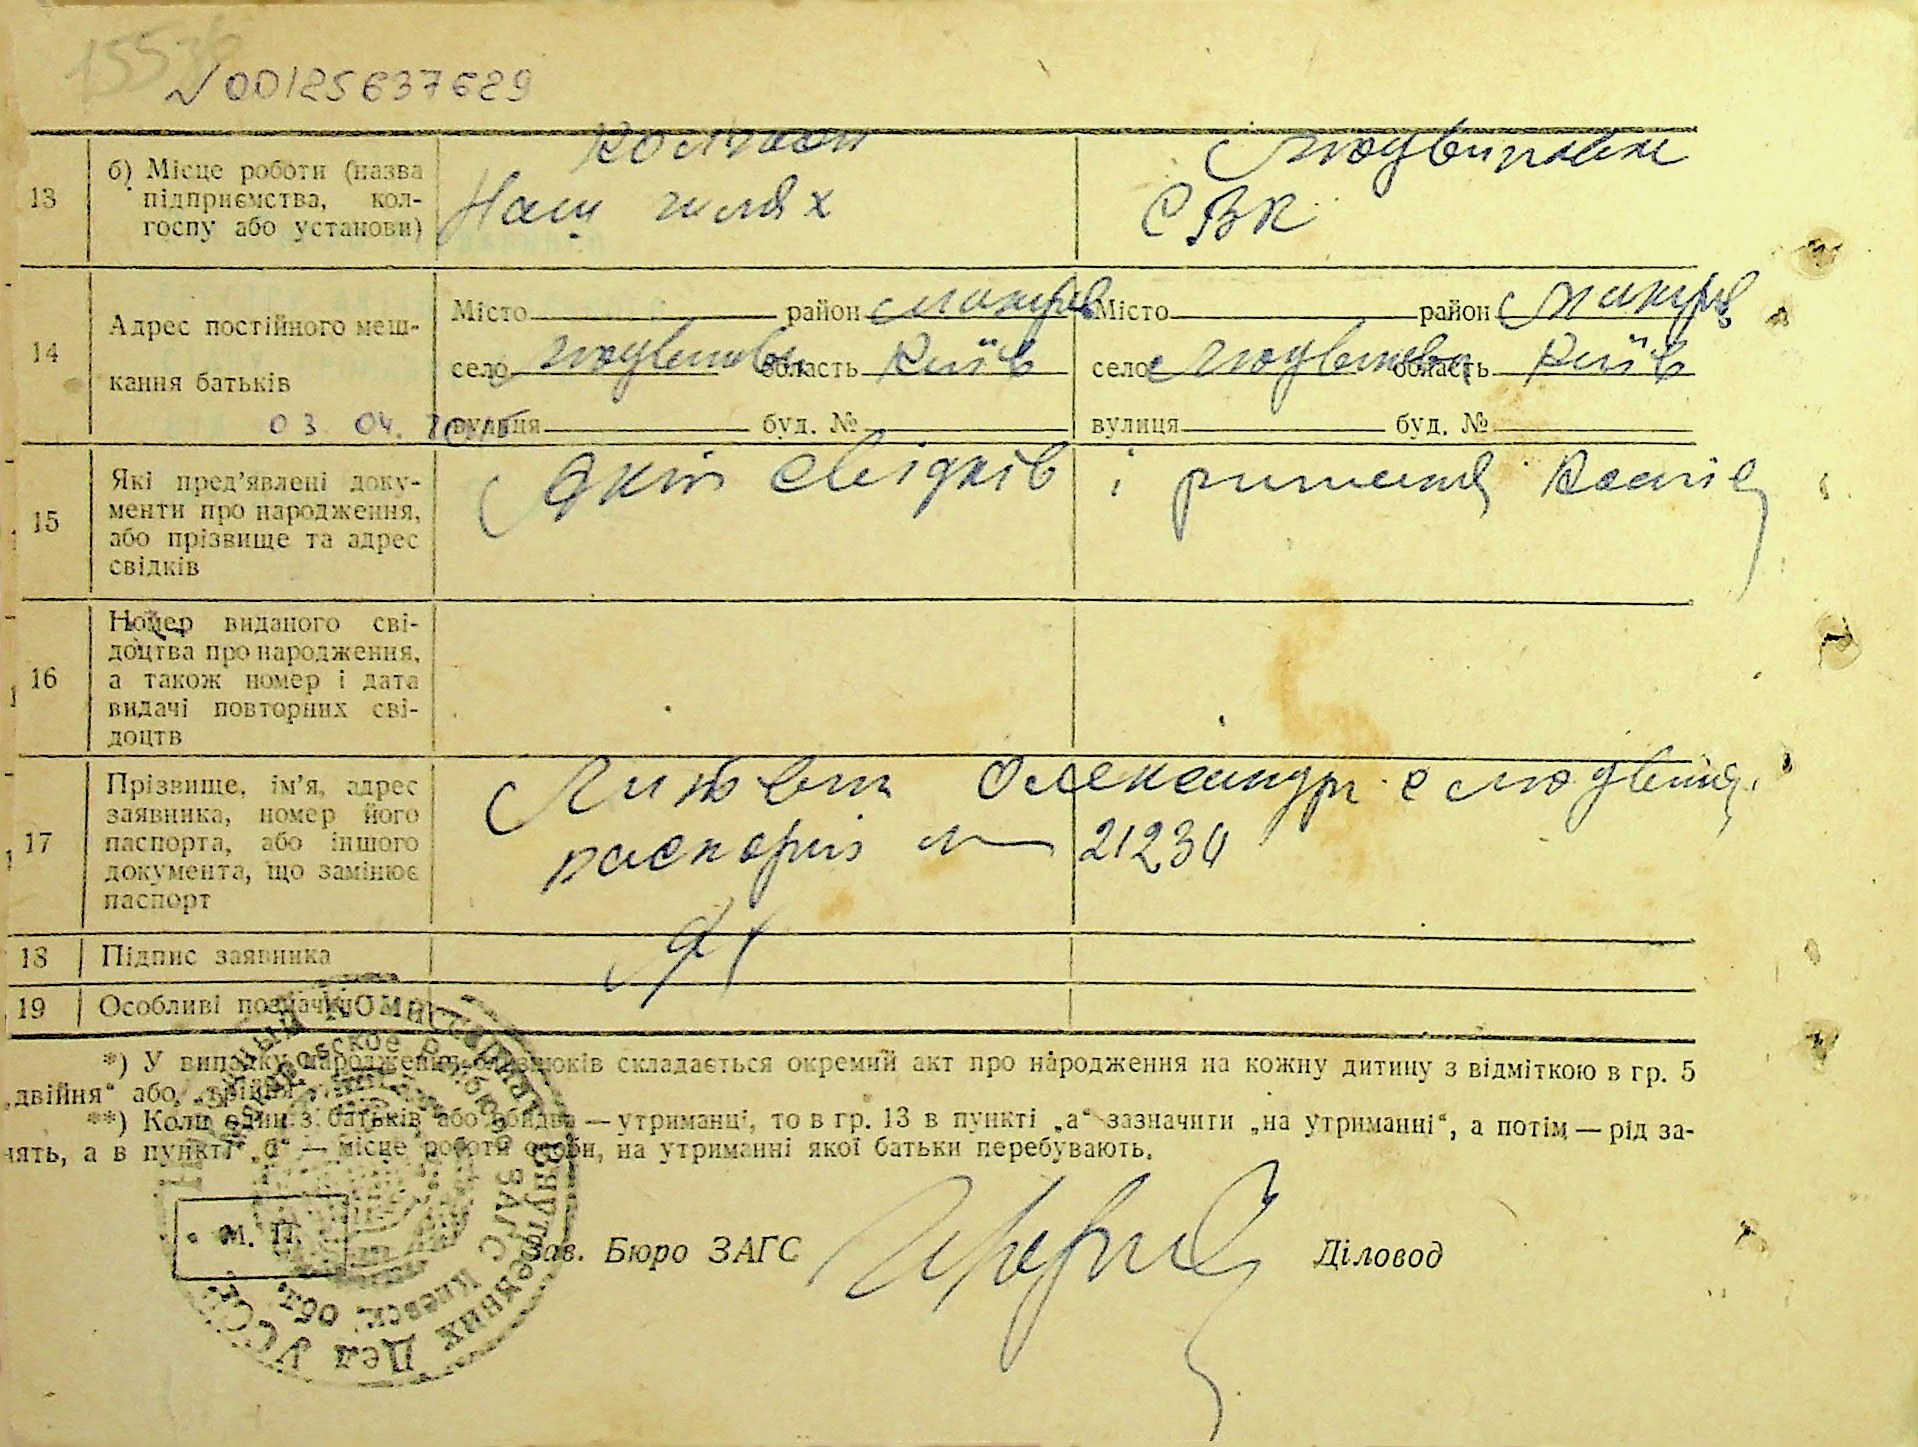 1553
N 00125637629
13
б) Місце роботи (назва підприємства, колгоспу або установи)
Колгосп
Наш шлях
СВК
14
Адрес постійного мешкання батьків
Місто район Макарів
село область Київ
вулиця буд. №
Місто район Макарів
село область Київ
вулиця буд. №
03 04.
15
Які пред'явлені документи про народження, або прізвище та адрес свідків
Акт свідків і рішення
16
Номер виданого свідоцтва про народження, а також номер і дата видачі повторних свідоцтв
17
Прізвище, ім'я, адрес заявника, номер його паспорта, або іншого документа, що замінює паспорт
Литвин Олександр с
паспорт № 21230
18
Підпис заявника
19
Особливі позначки
*) У випадку народження близнюків складається окремий акт про народження на кожну дитину з відміткою в гр. 5
„двійня“ або „трійня“.
**) Коли один з батьків або обидва — утриманці, то в гр. 13 в пункті „а“ зазначити „на утриманні“, а потім — рід за-
нять, а в пункті „б“ — місце роботи особи, на утриманні якої батьки перебувають.
М. П.
Зав. Бюро ЗАГС
Діловод
Народный Комиссариат Внутренних Дел УССР
бюро ЗАГС Киевск. обл.